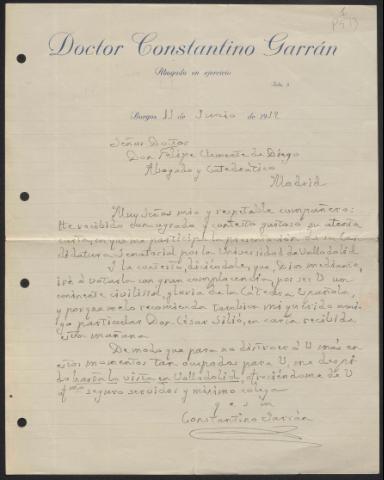 Doctor Constantino Garrán
Abogado en ejercicio
Burgos 11 de Junio de 1912
Señor Doctor
Don Felipe Clemente de Diego
Abogado y Catedrático
Madrid
Muy Señor mio y respetable compañero:
He recibido con agrado y contesto gustoso su atenta
carta, en que me participa la presentación de su Can-
didatura Senatorial por la Universidad de Valladolid
Y la contesto, diciéndole, que, Dios mediante,
iré á votarla con gran complacencia, por ser V. un
eminente civilista, gloria de la Cátedra Española,
y porque me lo recomienda tambien mi querido ami-
go particular Don César Silió, en carta recibida
esta mañana.
De modo que para no distraer á V. más en
estos momentos tan ocupados para V, me despi-
do hasta la vista en Valladolid, ofreciéndome de V
seguro servidor y mismo colega
q e s m
Constantino Garrán